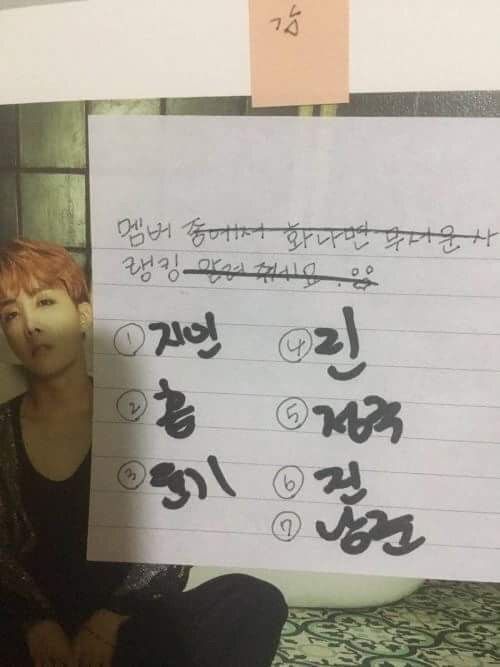 멤버 중에서 화나면 무서운 사
랭킹 알려 주세요.
① 지민
② 홉
③ 윤기
④
⑤ 정국
⑥ 진
⑦ 남준